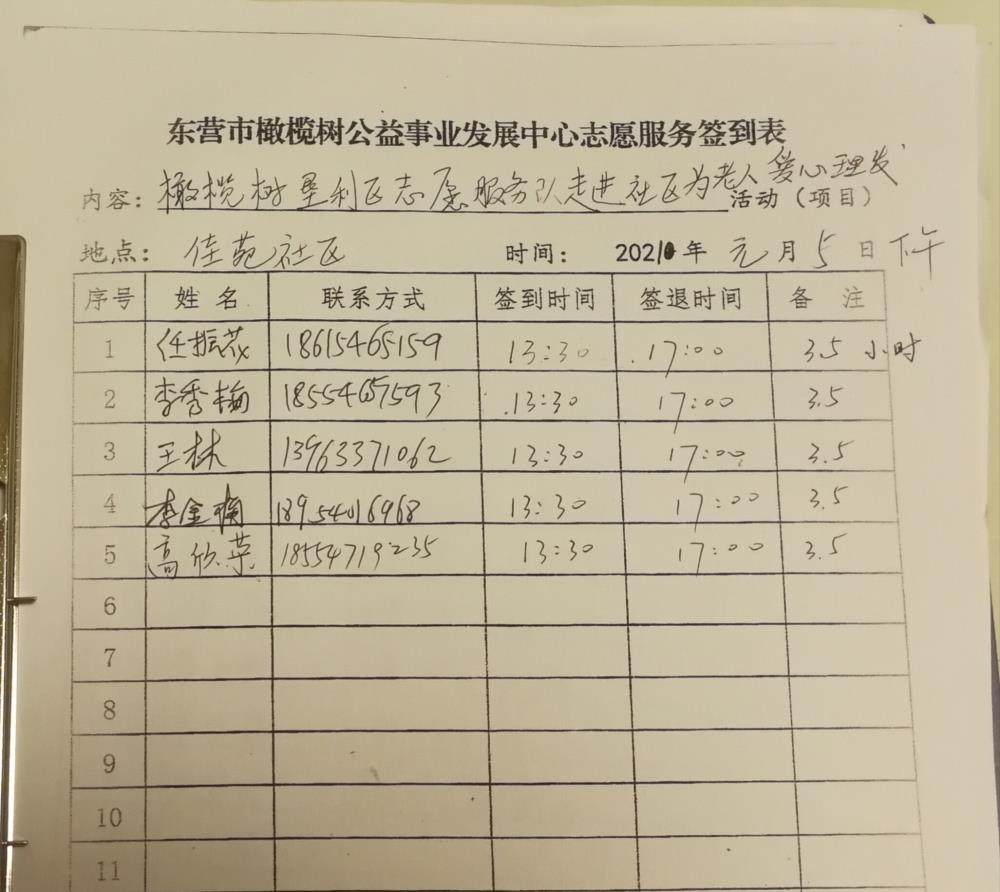 东营市橄榄树公益事业发展中心志愿服务签到表
内容：橄榄树垦利区志愿服务队走进社区为老人爱心理发活动（项目）
地点：佳苑社区 时间：2021年元月5日下午
序号 姓名 联系方式 签到时间 签退时间 备注
1 任振茂 18615465159 13:30 17:00 3.5小时
2 李秀梅 18554657593 13:30 17:00 3.5
3 王林 13963371062 13:30 17:00 3.5
4 李金 18954016968 13:30 17:00 3.5
5 高欣荣 18554719235 13:30 17:00 3.5
6
7
8
9
10
11